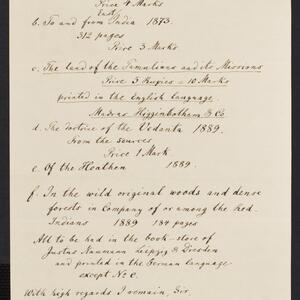 Price 4 Marks
East
b. To and from India 1873.
312 pages
Price 3 Marks
c. The land of the Tamulians and its Missions
Price 5 Rupies = 10 Marks
printed in the English language.
Madras Higginbotham & Co.
d. The doctrine of the Vedanta 1889.
From the sources
Price 1 Mark
e. Of the Heathen 1889
f. In the wild original woods and dense
forests in Company of or among the Red-
Indians 1889 184 pages
All to be had in the book-store of
Justus Naumann Leipzig & Dresden
and printed in the German language
except No C.
With high regards I remain, Sir,